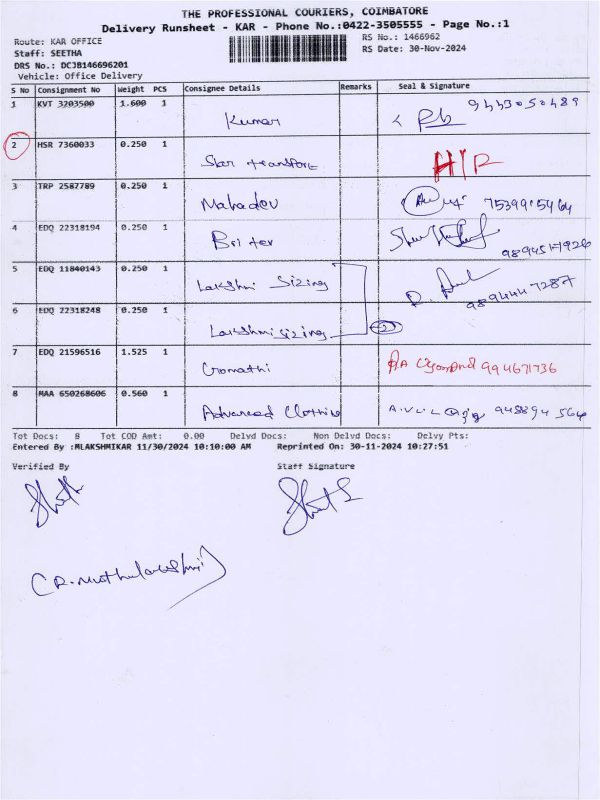 THE PROFESSIONAL COURIERS, COIMBATORE
Delivery Runsheet - KAR - Phone No.:0422-3505555 - Page No.:1
Route: KAR OFFICE
RS No.: 1466962
Staff: SEETHA
RS Date: 30-Nov-2024
DRS No.: DCJB146696201
Vehicle: Office Delivery
S No Consignment No Weight PCS Consignee Details Remarks Seal & Signature
1 KVT 3203500 1.600 1 Kumar 9443050489
2 HSR 7360033 0.250 1 Star transport H/R
3 TRP 2587789 0.250 1 Mahadev 7539915464
4 EDQ 22318194 0.250 1 Briter
5 EDQ 11840143 0.250 1 Lakshmi Sizing 9894447287
6 EDQ 22318248 0.250 1 Lakshmi sizing 2
7 EDQ 21596516 1.525 1 Gomathi 994671736
8 MAA 650268606 0.560 1 Advanced Clothing
Tot Docs: 8 Tot COD Amt: 0.00 Delvd Docs: Non Delvd Docs: Delvy Pts:
Entered By :MLAKSHMIKAR 11/30/2024 10:10:00 AM Reprinted On: 30-11-2024 10:27:51
Verified By Staff Signature
(R. Muthulakshmi)